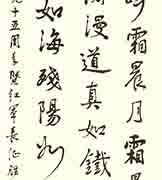 霜晨月霜
關漫道真如鐵
如海殘陽如
十五周年暨红軍長征胜